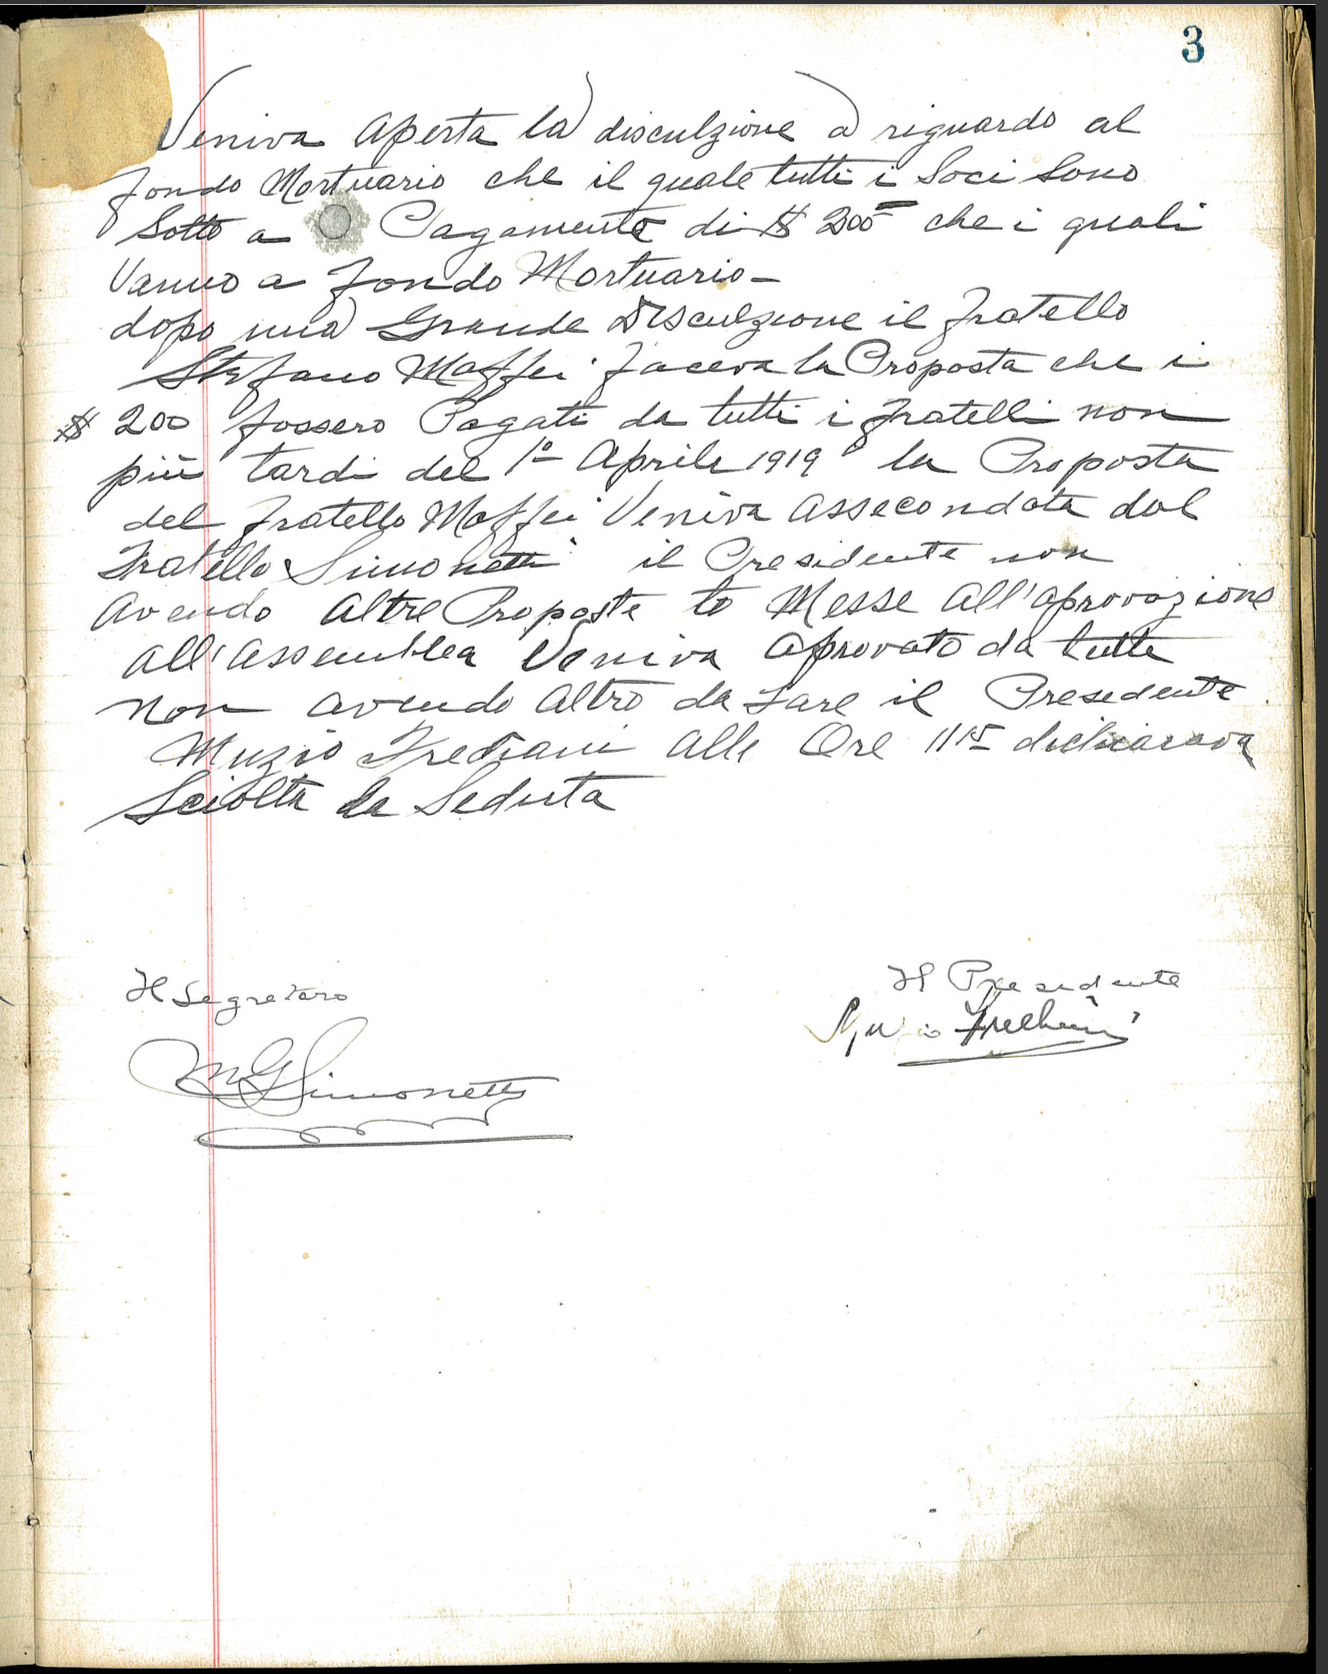 3
Veniva Aperta la disculzione a riguardo al
fondo Mortuario che il quale tutti i Soci Sono
Sotto a Pagamento di $ 200 che i quali
Vanno a fondo Mortuario-
dopo una Grande Disculzione il fratello
Stefano Maffei faceva la Proposta che i
$ 200 fossero Pagati da tutti i fratelli non
più tardi del 1° Aprile 1919 la Proposta
del fratello Maffei Veniva Assecondata dal
Fratello Simonetti il Presidente non
Avendo Altre Proposte lo Messe All'aprovazione
All'Assemblea Veniva Aprovato da tutti
Non Avendo Altro da Fare il Presedente
Muzio Frediani Alle Ore 11 15 dichiarava
Sciolta la Seduta
Il Segretaro
Il Presidente
Muzio Frediani
M G Simonetti